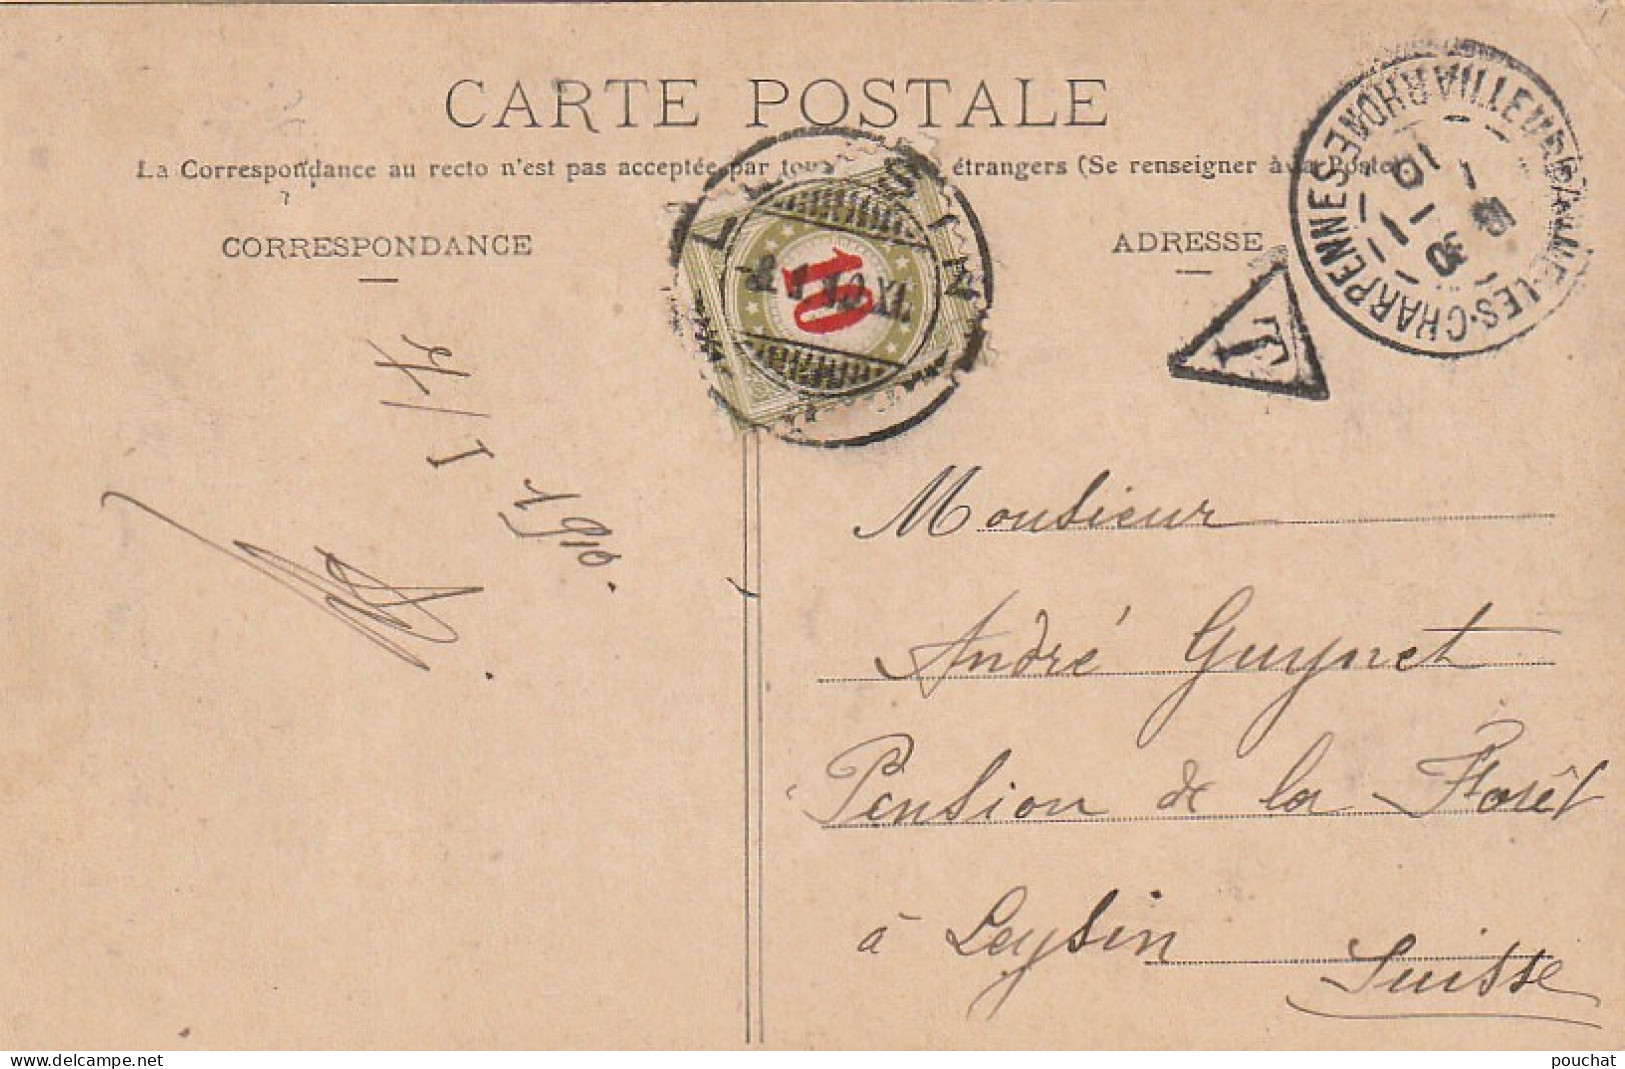 CARTE POSTALE
La Correspondance au recto n'est pas acceptée par tous étrangers (Se renseigner à la Poste)
CORRESPONDANCE
ADRESSE
VILLEURBANNE-LES-CHARPENNES RHONE
T
10
7/I 1910.
Monsieur
André Guynet
Pension de la Forêt
à Leysin
Suisse
www.delcampe.net
pouchat